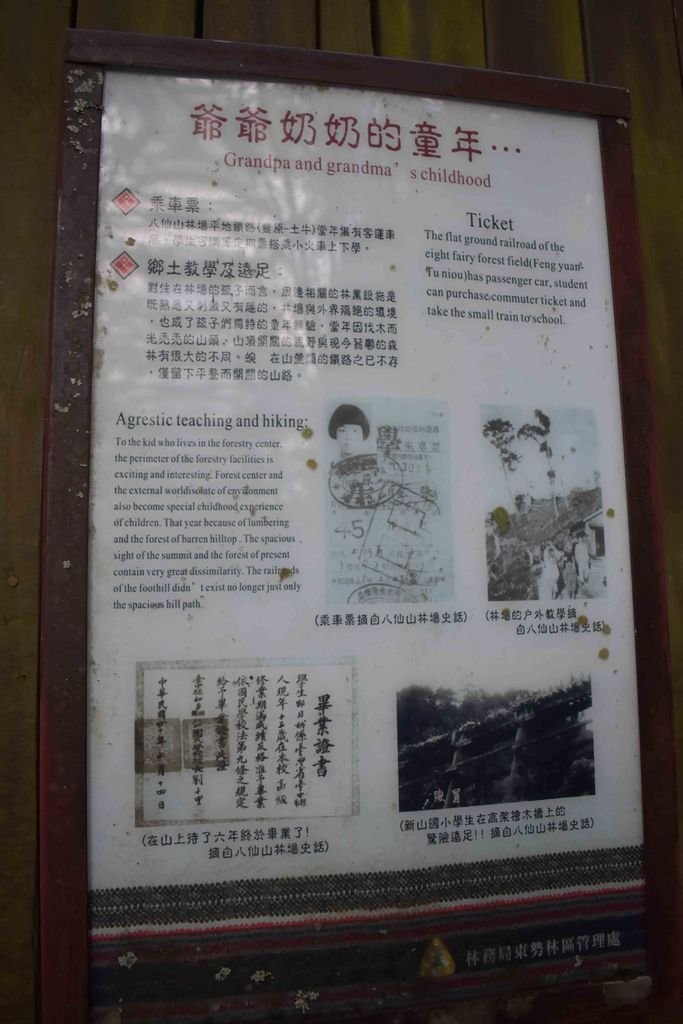 爺爺奶奶的童年…
Grandpa and grandma's childhood
乘車票：
八仙山林場平地鐵路(豐原-土牛)當年備有客運車
廂，學生可購買定期票搭乘小火車上下學。
鄉土教學及遠足：
對住在林場的孩子而言，周邊相關的林業設施是
既熟悉又刺激又有趣的，林場與外界隔絕的環境
，也成了孩子們獨特的童年經驗。當年因伐木而
光禿禿的山頭、山頂開闊的視野與現今蓊鬱的森
林有很大的不同。蜿 在山麓間的鐵路之已不存
，僅留下平整而開闊的山路。
Ticket
The flat ground railroad of the
eight fairy forest field(Feng yuan-
Tu niou)has passenger car, student
can purchase commuter ticket and
take the small train to school.
Agrestic teaching and hiking:
To the kid who lives in the forestry center,
the perimeter of the forestry facilities is
exciting and interesting. Forest center and
the external worldisolate of environment
also become special childhood experience
of children. That year because of lumbering
and the forest of barren hilltop . The spacious
sight of the summit and the forest of present
contain very great dissimilarity. The railroads
of the foothill didn't exist no longer just only
the spacious hill path.
乘車票
45
(乘車票摘自八仙山林場史話)
(林場的戶外教學摘
自八仙山林場史話)
畢業證書
學生
人現年十三歲在本校高級
修業期滿成績及格准予畢業
依國民學校法第九條之規定
給予畢業證書此證
(在山上待了六年終於畢業了!
摘自八仙山林場史話)
(新山國小學生在高架檜木橋上的
驚險遠足!! 摘自八仙山林場史話)
林務局東勢林區管理處